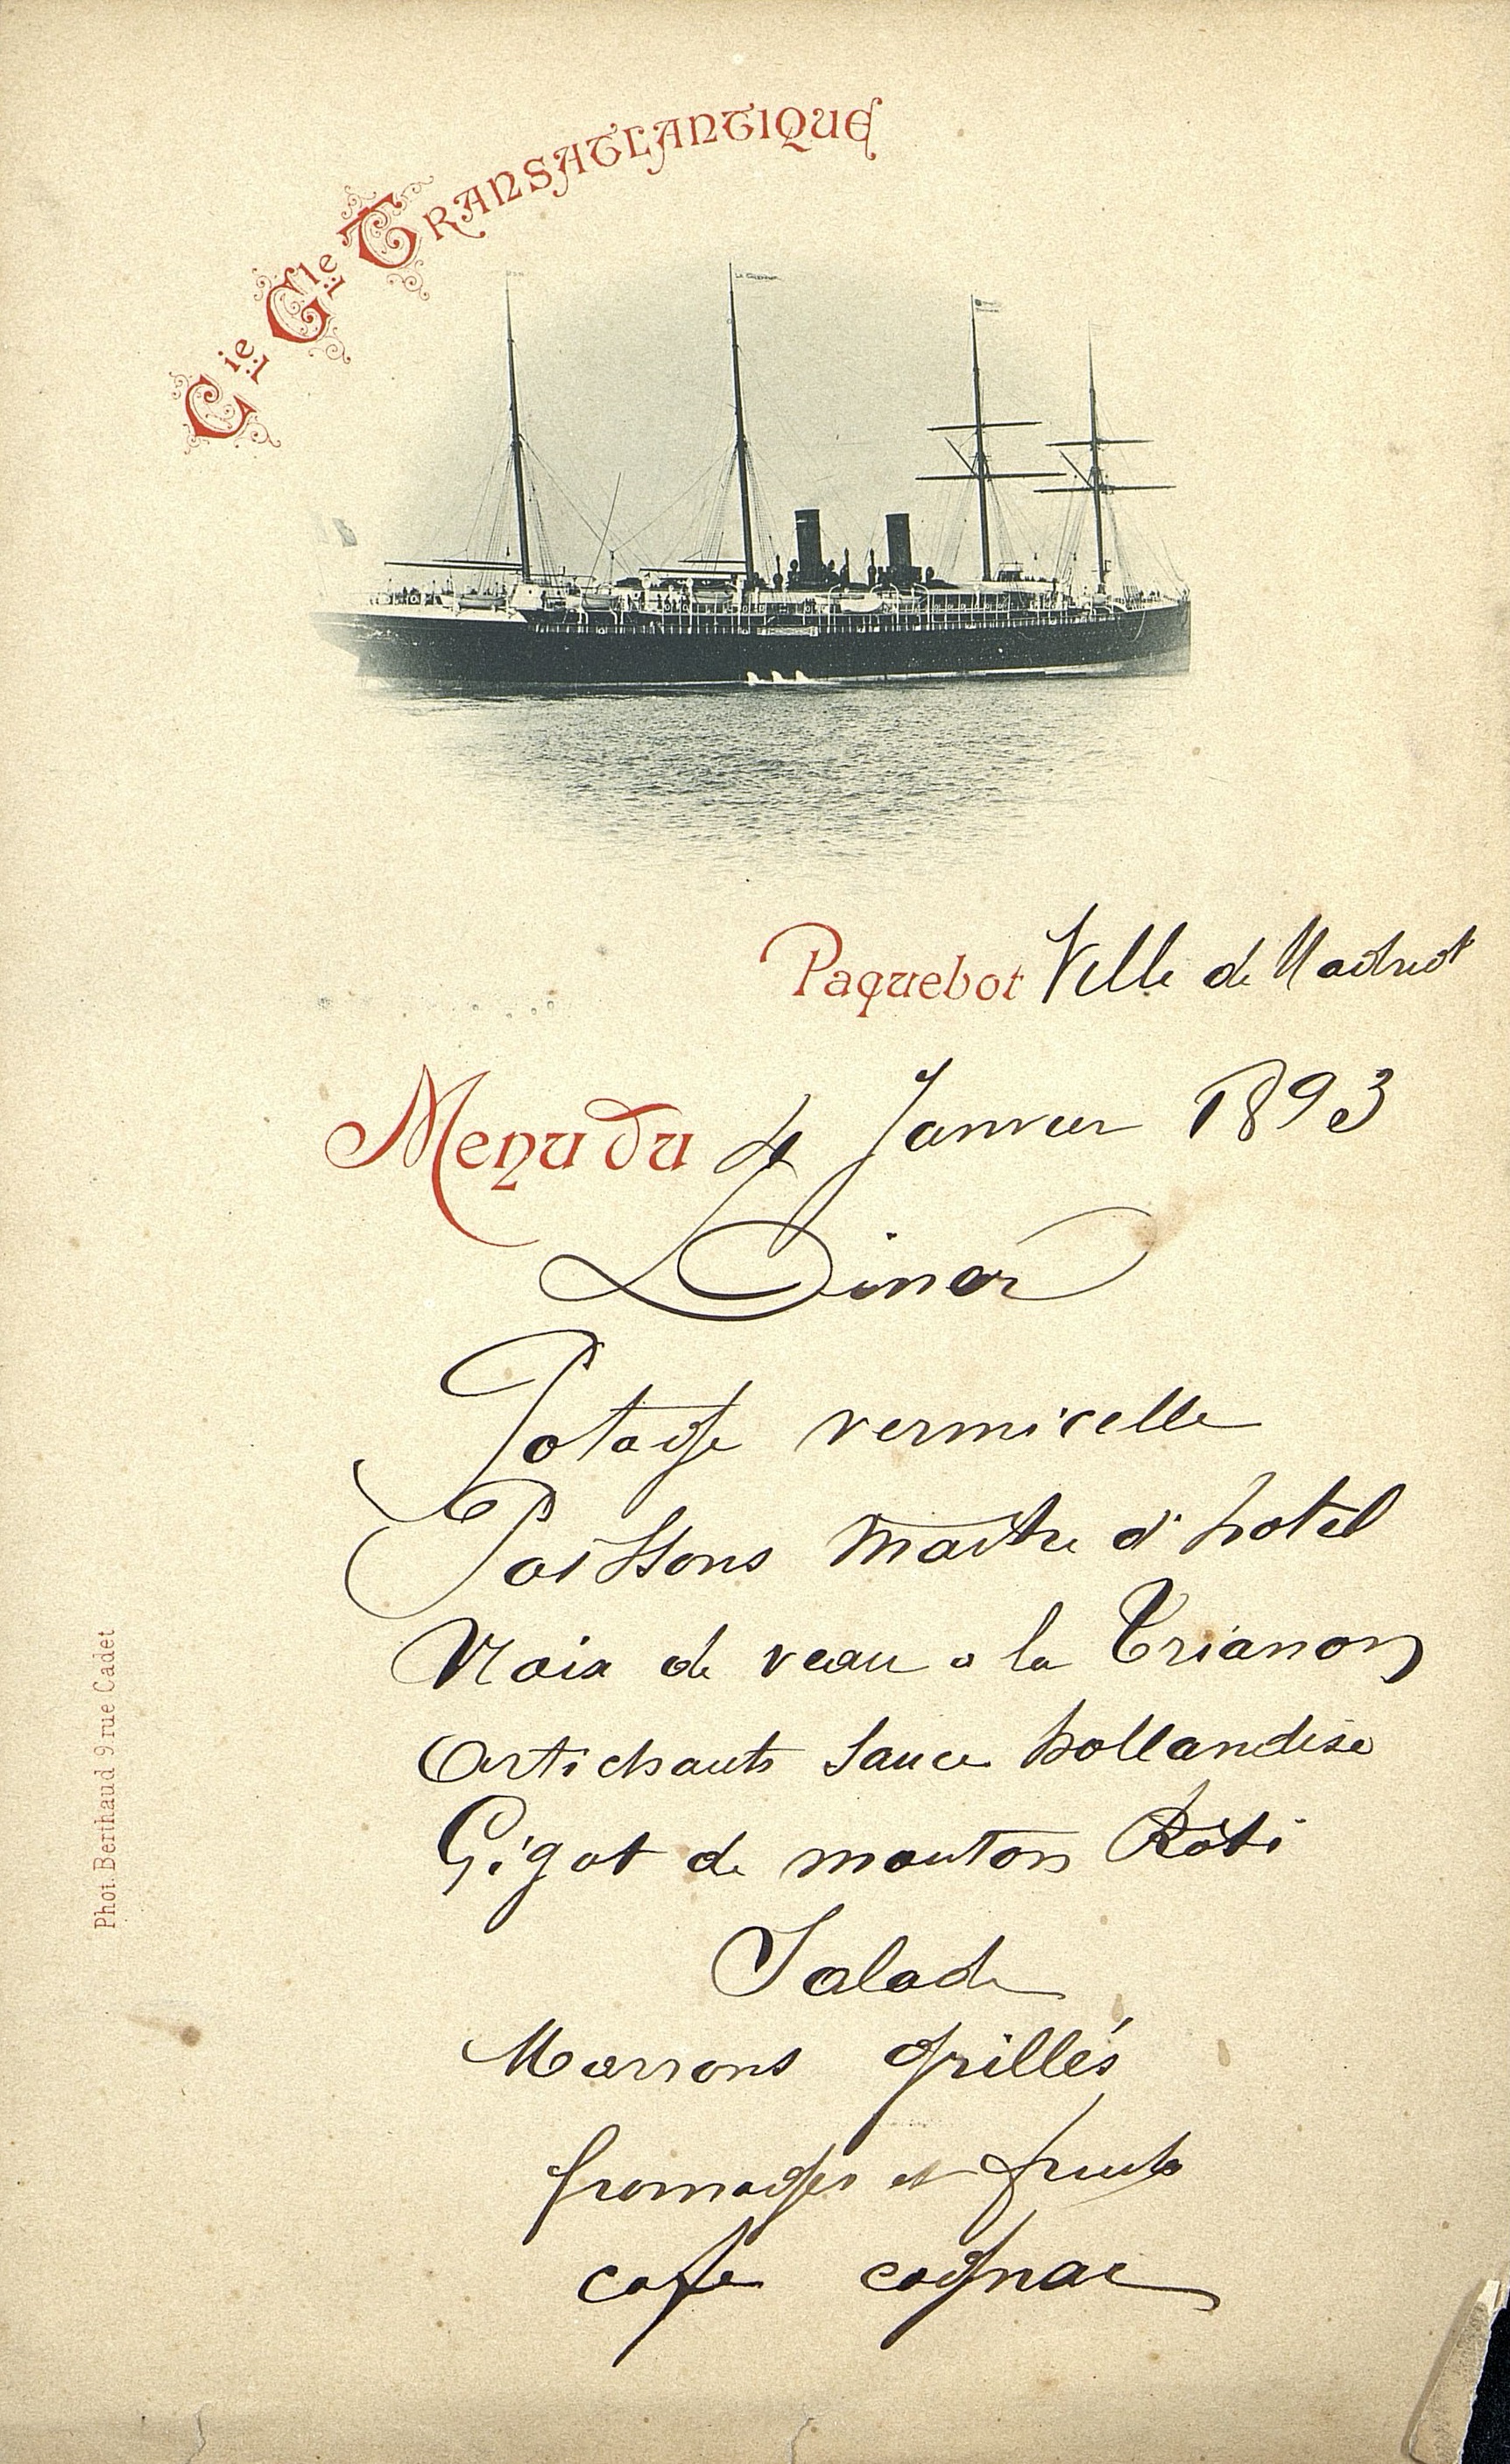 Cie Gle TRANSATLANTIQUE
Paquebot Ville de Madrid
Menu du 4 Janvier 1893
Diner
Potage vermicelle
Poissons maitre d'hotel
Noix de veau a la Trianon
Artichauts sauce hollandise
Gigot de mouton Rôti
Salade
Marrons grillés
fromages et fruits
café cognac
Phot. Berthaud 9 rue Cadet